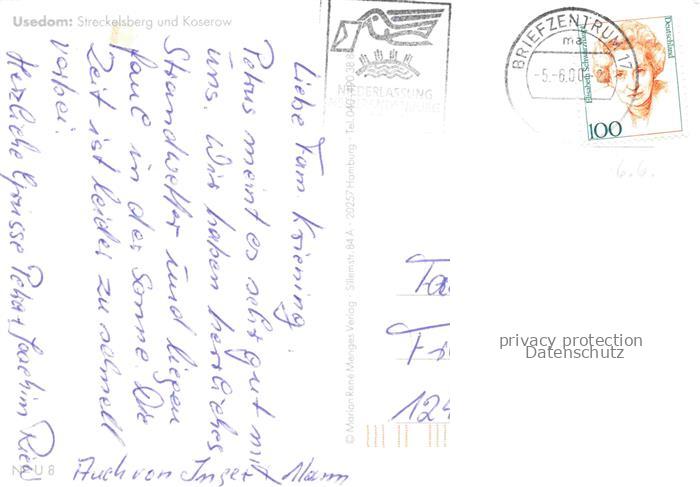 Usedom: Streckelsberg und Koserow
Liebe Fam. Kriening.
Petrus meint es sehr gut mit
uns. Wir haben herrliches
Strandwetter und liegen
faul in der Sonne. Die
Zeit ist leider zu schnell
vorbei.
Herzliche Grüsse Petra + Joachim
Auch von Inge + Mann
NEU 8
© Marion René Menges Verlag · Sillemstr. 84 A · 20257 Hamburg · Tel.
NIEDERLASSUNG
BRIEFZENTRUM 17
ma
-5.-6.00
Deutschland
100
6.6.
Fa
Fr
124
privacy protection
Datenschutz